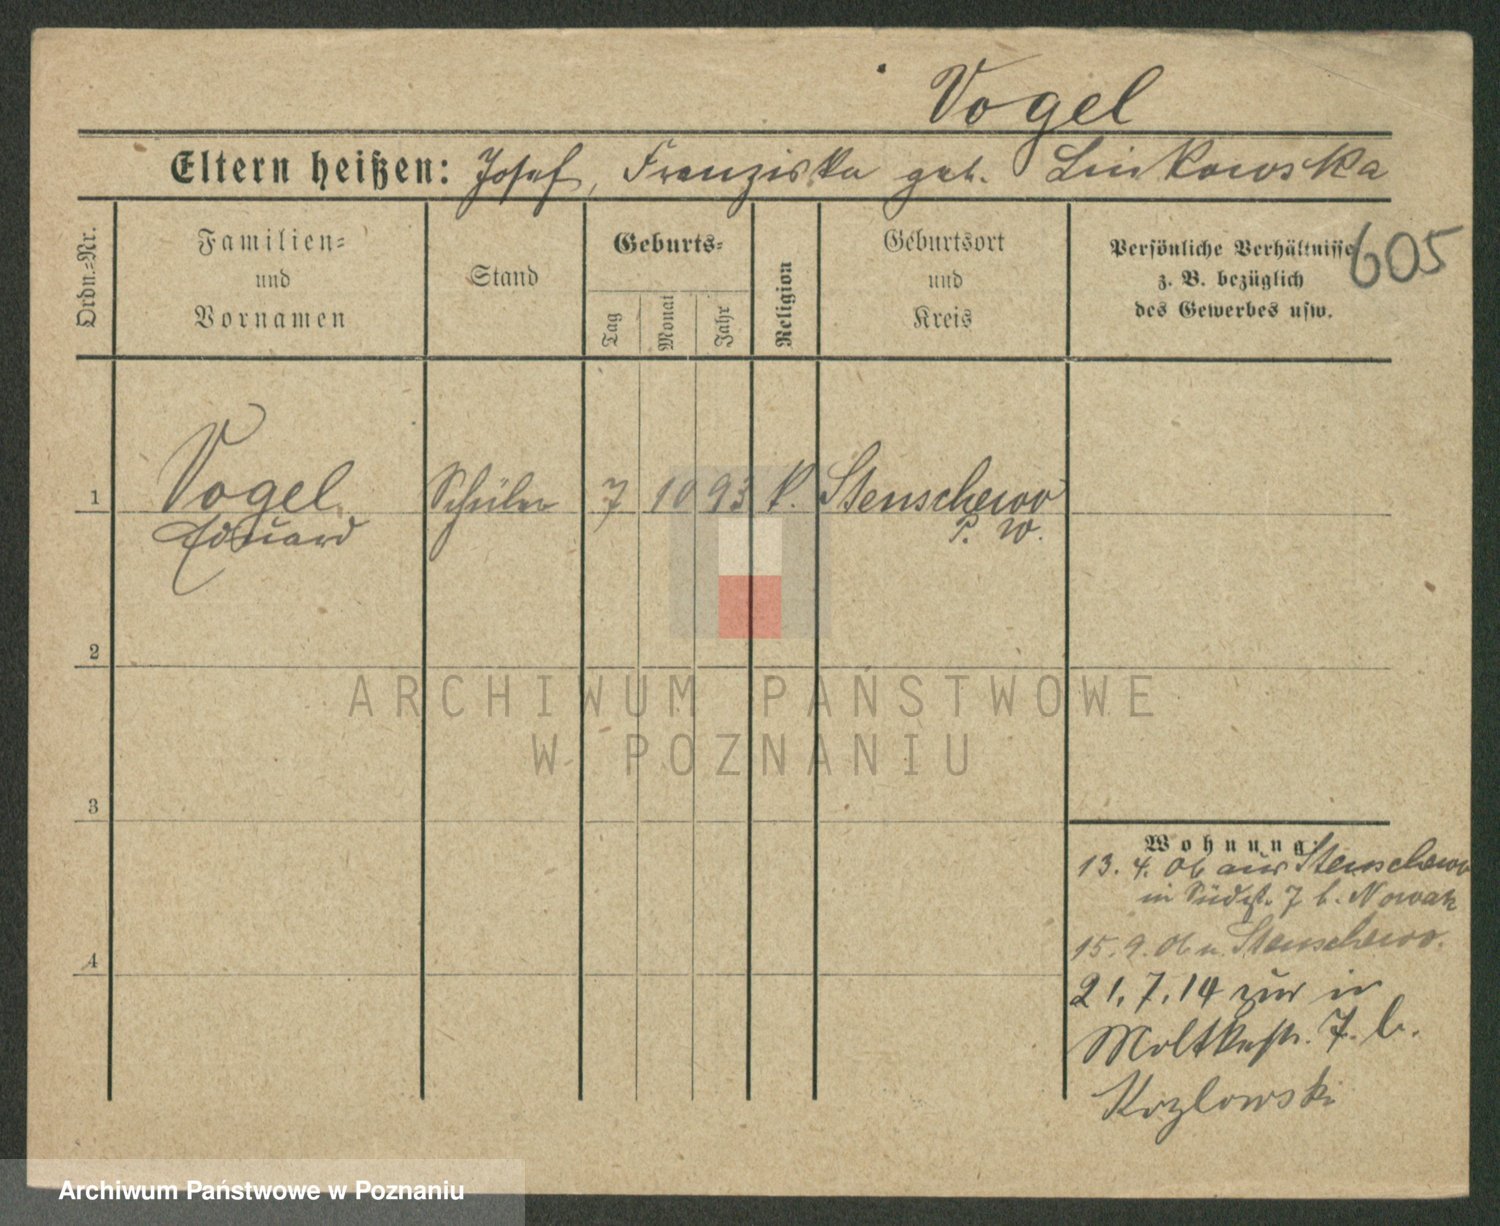 Vogel
Eltern heißen: Josef, Franziska geb. Linkowska
Ordn.=Nr.
Familien=
und
Vornamen
Stand
Geburts=
Tag
Monat
Jahr
Religion
Geburtsort
und
Kreis
Persönliche Verhältnisse
z. B. bezüglich
des Gewerbes usw.
605
1 Vogel Schüler 7 10 93 k. Stenschewo
Eduard P. W.
2
ARCHIWUM PAŃSTWOWE
W POZNANIU
3
Wohnung:
13. 4. 06 aus Stenschewo
in Südstr. 7 b. Nowak
15. 9. 06 n. Stenschewo.
4
21. 7. 14 zur in
Moltkestr. 7. b.
Kozlowski
Archiwum Państwowe w Poznaniu